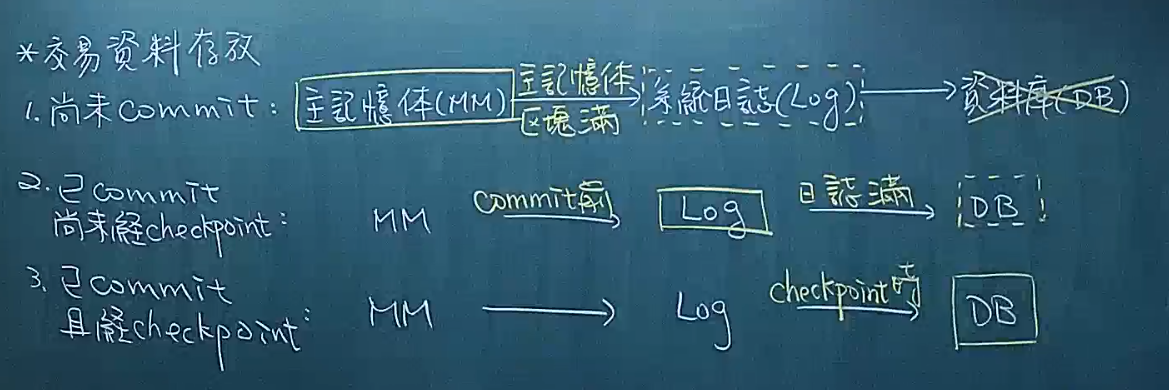 *交易資料存放
1.尚未commit: 主記憶体(MM) 主記憶体 区塊滿 系統日誌(Log) 資料庫(DB)
2.已commit
尚未經checkpoint: MM commit前 Log 日誌滿 DB
3.已commit
且經checkpoint: MM Log checkpoint時 DB